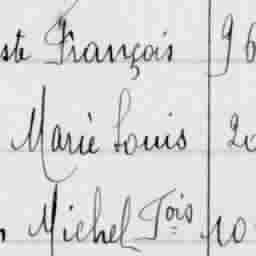 ste François 96
Marie Louis 20
Michel Fois 10